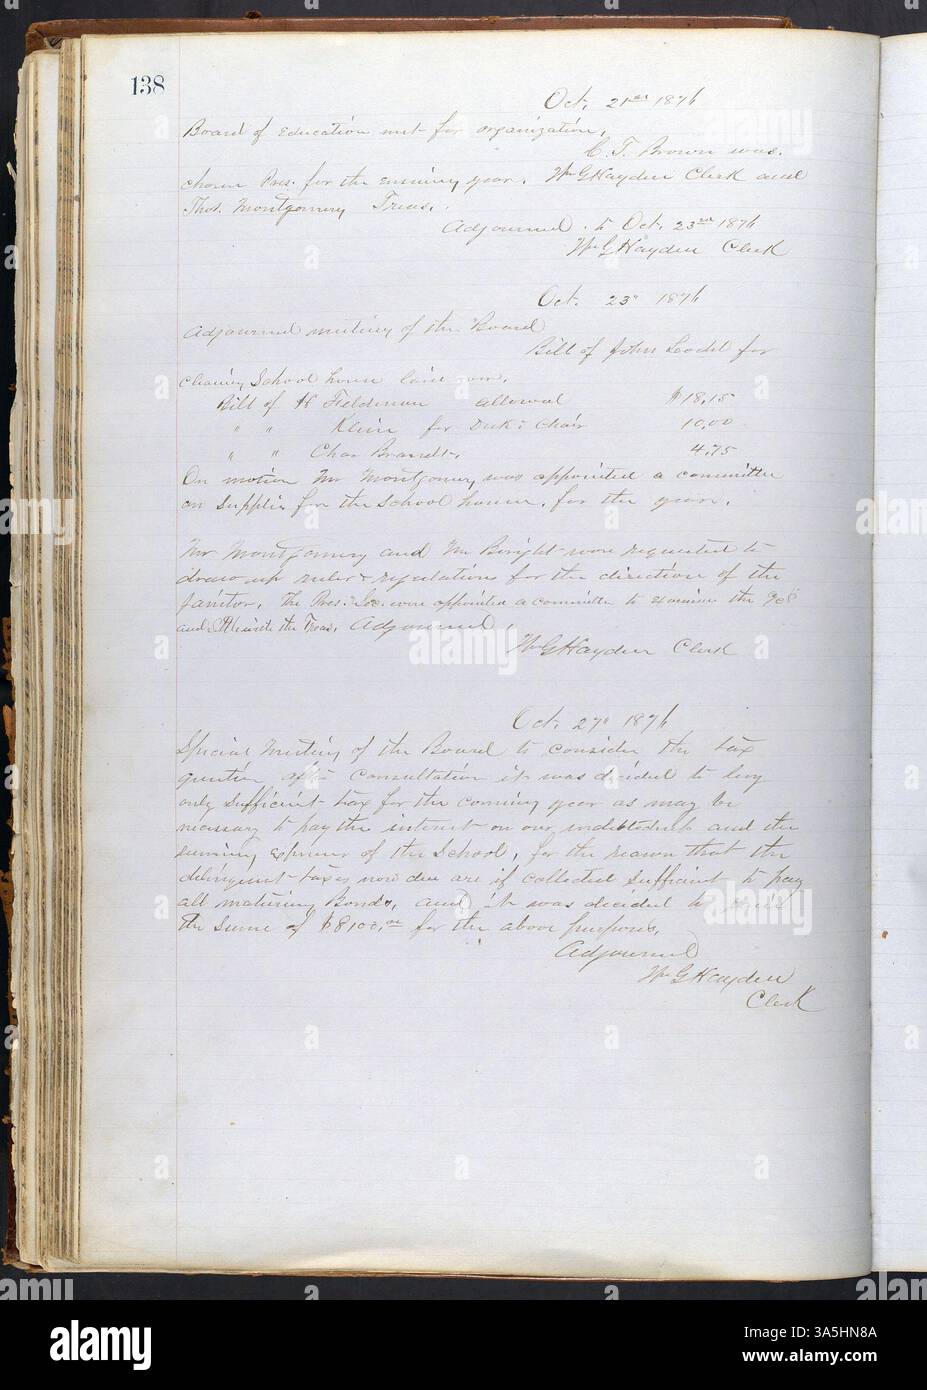 138
Oct. 21st 1876
Board of Education met for organization.
C. T. Brown was
chosen Pres. for the ensuing year. Wm G Hayden Clerk and
Thos. Montgomery Treas.
Adjourned to Oct. 23rd 1876
Wm G Hayden Clerk
Oct. 23d 1876
Adjourned meeting of the Board
Bill of John for
cleaning School house laid over.
Bill of H Feldman allowed $18,15
" " Klein for Desk & Chair 10,00
" " Chas Brandt. 4,75
On motion Mr Montgomery was appointed a committee
on Supplies for the School house, for the year.
Mr Montgomery and Mr were requested to
draw up rules & regulations for the direction of the
janitor. The Pres. & Sec. were appointed a committee to examine the
and the Treas. Adjourned.
Wm G Hayden Clerk
Oct. 27th 1876
Special Meeting of the Board to consider the tax
question after consultation it was decided to levy
only Sufficient tax for the coming year as may be
necessary to pay the interest on our indebtedness and the
running expenses of the School, for the reason that the
delinquent taxes now due are if collected Sufficient to pay
all maturing Bonds, and it was decided to
the Sume of $8,100.00 for the above purposes.
Adjourned
Wm G Hayden
Clerk
alamy
a
alamy
3A5HN8A